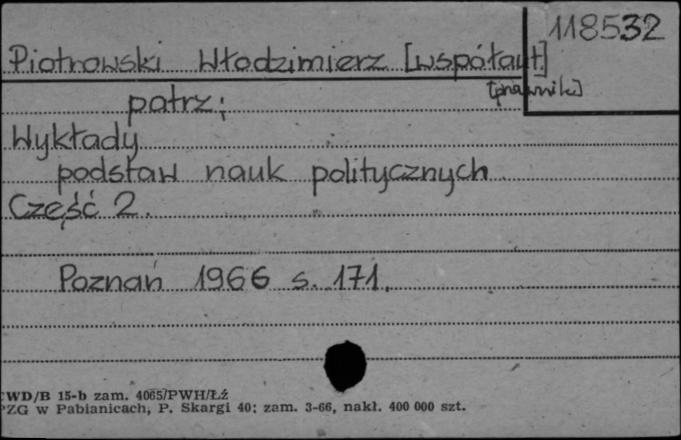 118532
Piotrowski Włodzimierz [współaut]
[prawnik]
patrz:
Wykłady
podstaw nauk politycznych
Część 2.
Poznań 1966 s. 171.
WD/B 15-b zam. 4065/PWH/Łź
PZG w Pabianicach, P. Skargi 40; zam. 3-66, nakł. 400 000 szt.